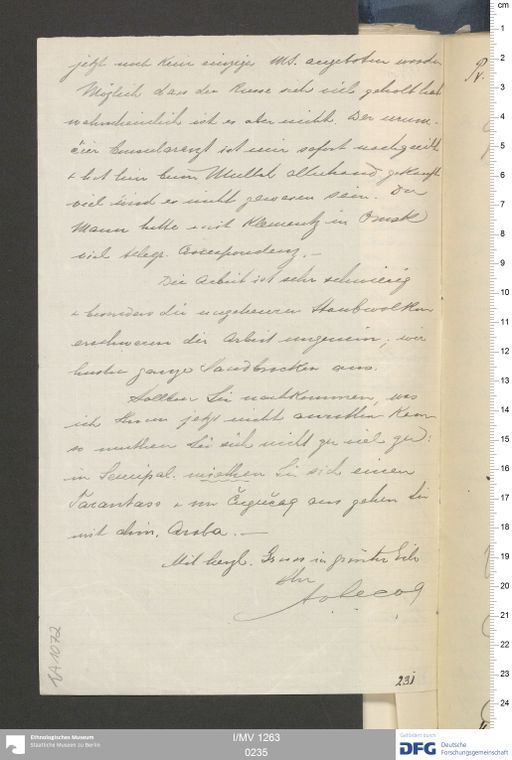 jetzt noch kein einziges MS. angeboten worden
Möglich dass der Russe sich viel geholt hat
wahrscheinlich ist es aber nicht. Der urum-
čier Consulararzt ist mir sofort nachgeeilt
+ hat hier beim Mullah allerhand gekauft
viel wird es nicht gewesen sein. Der
Mann hatte mit Klementz in Omsk
viel telegr. Correspondenz. —
Die Arbeit ist sehr schwierig
+ besonders die ungeheuren Staubwolken
erschweren die Arbeit ungemein; wir
husten ganze Sandbrocken aus.
Sollten Sie nachkommen, was
ich Ihnen jetzt nicht anrathen kann
so muthen Sie sich nicht zu viel zu:
in Semipal. miethen Sie sich einen
Tarantass + von Čugučaq aus gehen Sie
mit chin. Araba. —
Mit herzl. Gruss in grösster Eile
Ihr
ALeCoq
TA 1072
231
Ethnologisches Museum
Staatliche Museen zu Berlin
I/MV 1263
0235
Gefördert durch
DFG Deutsche
Forschungsgemeinschaft
cm
1
2
3
4
5
6
7
8
9
10
11
12
13
14
15
16
17
18
19
20
21
22
23
24